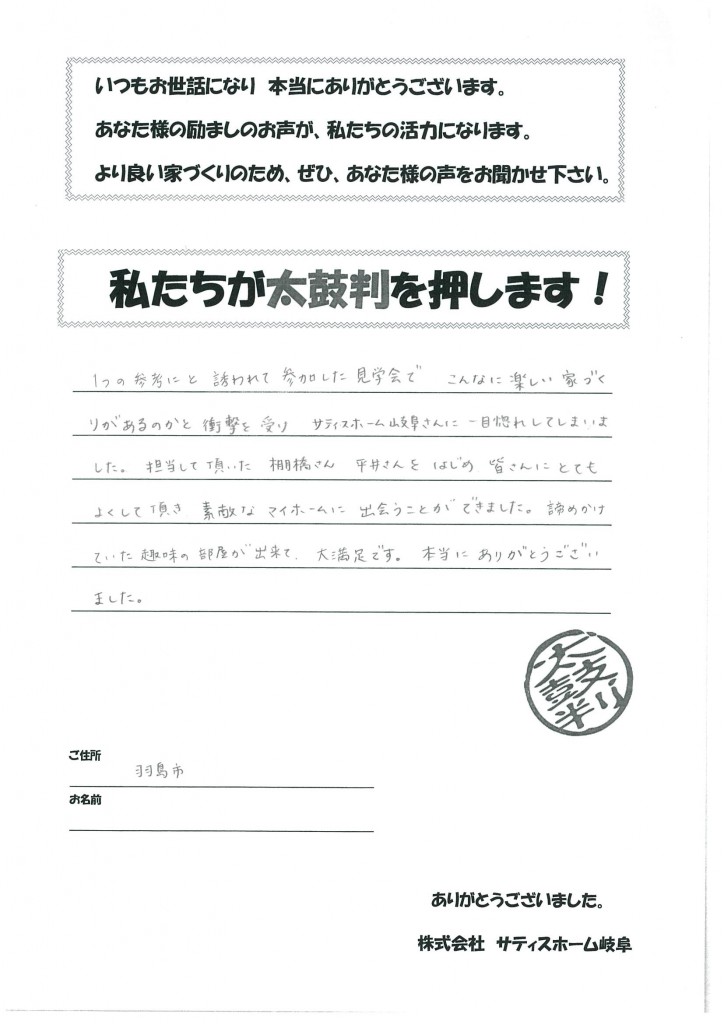 いつもお世話になり 本当にありがとうございます。
あなた様の励ましのお声が、私たちの活力になります。
より良い家づくりのため、ぜひ、あなた様の声をお聞かせ下さい。
私たちが太鼓判を押します！
1つの参考にと 誘われて 参加した 見学会で こんなに 楽しい 家づく
りがあるのかと 衝撃を 受け サティスホーム岐阜さんに 一目惚れしてしまいま
した。 担当して頂いた 棚橋さん 平井さんを はじめ 皆さんに とても
よくして 頂き 素敵な マイホームに 出会うことが できました。 諦めかけ
ていた 趣味の 部屋が 出来て、 大満足です。 本当に ありがとうござい
ました。
太鼓判
ご住所
羽島市
お名前
ありがとうございました。
株式会社 サティスホーム岐阜